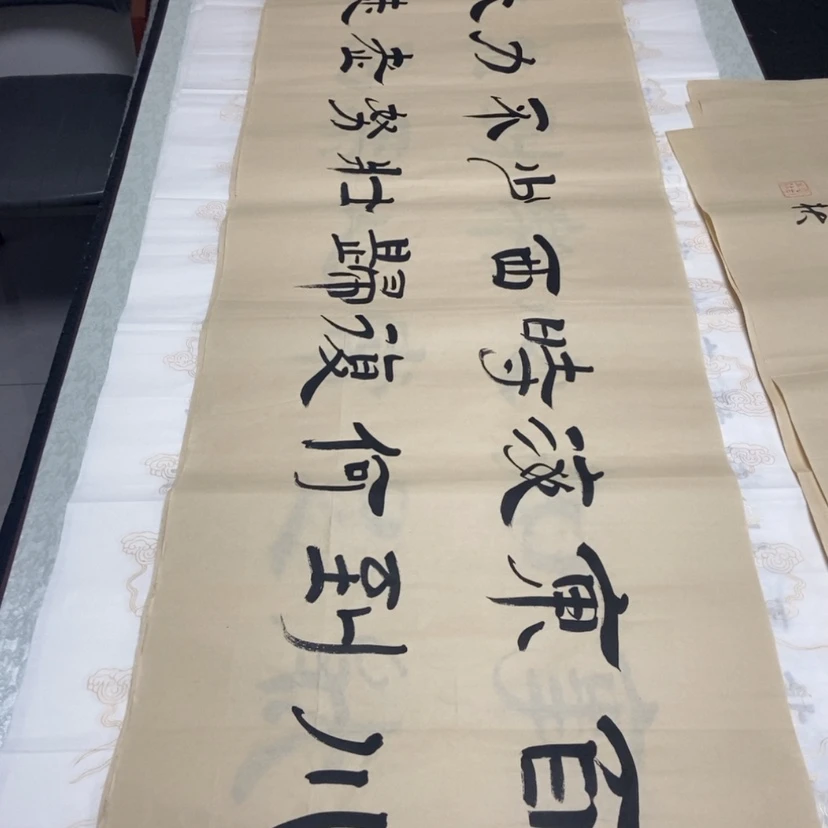 百川
東到
海何
時復
西歸
少壯
不努
力老
大徒